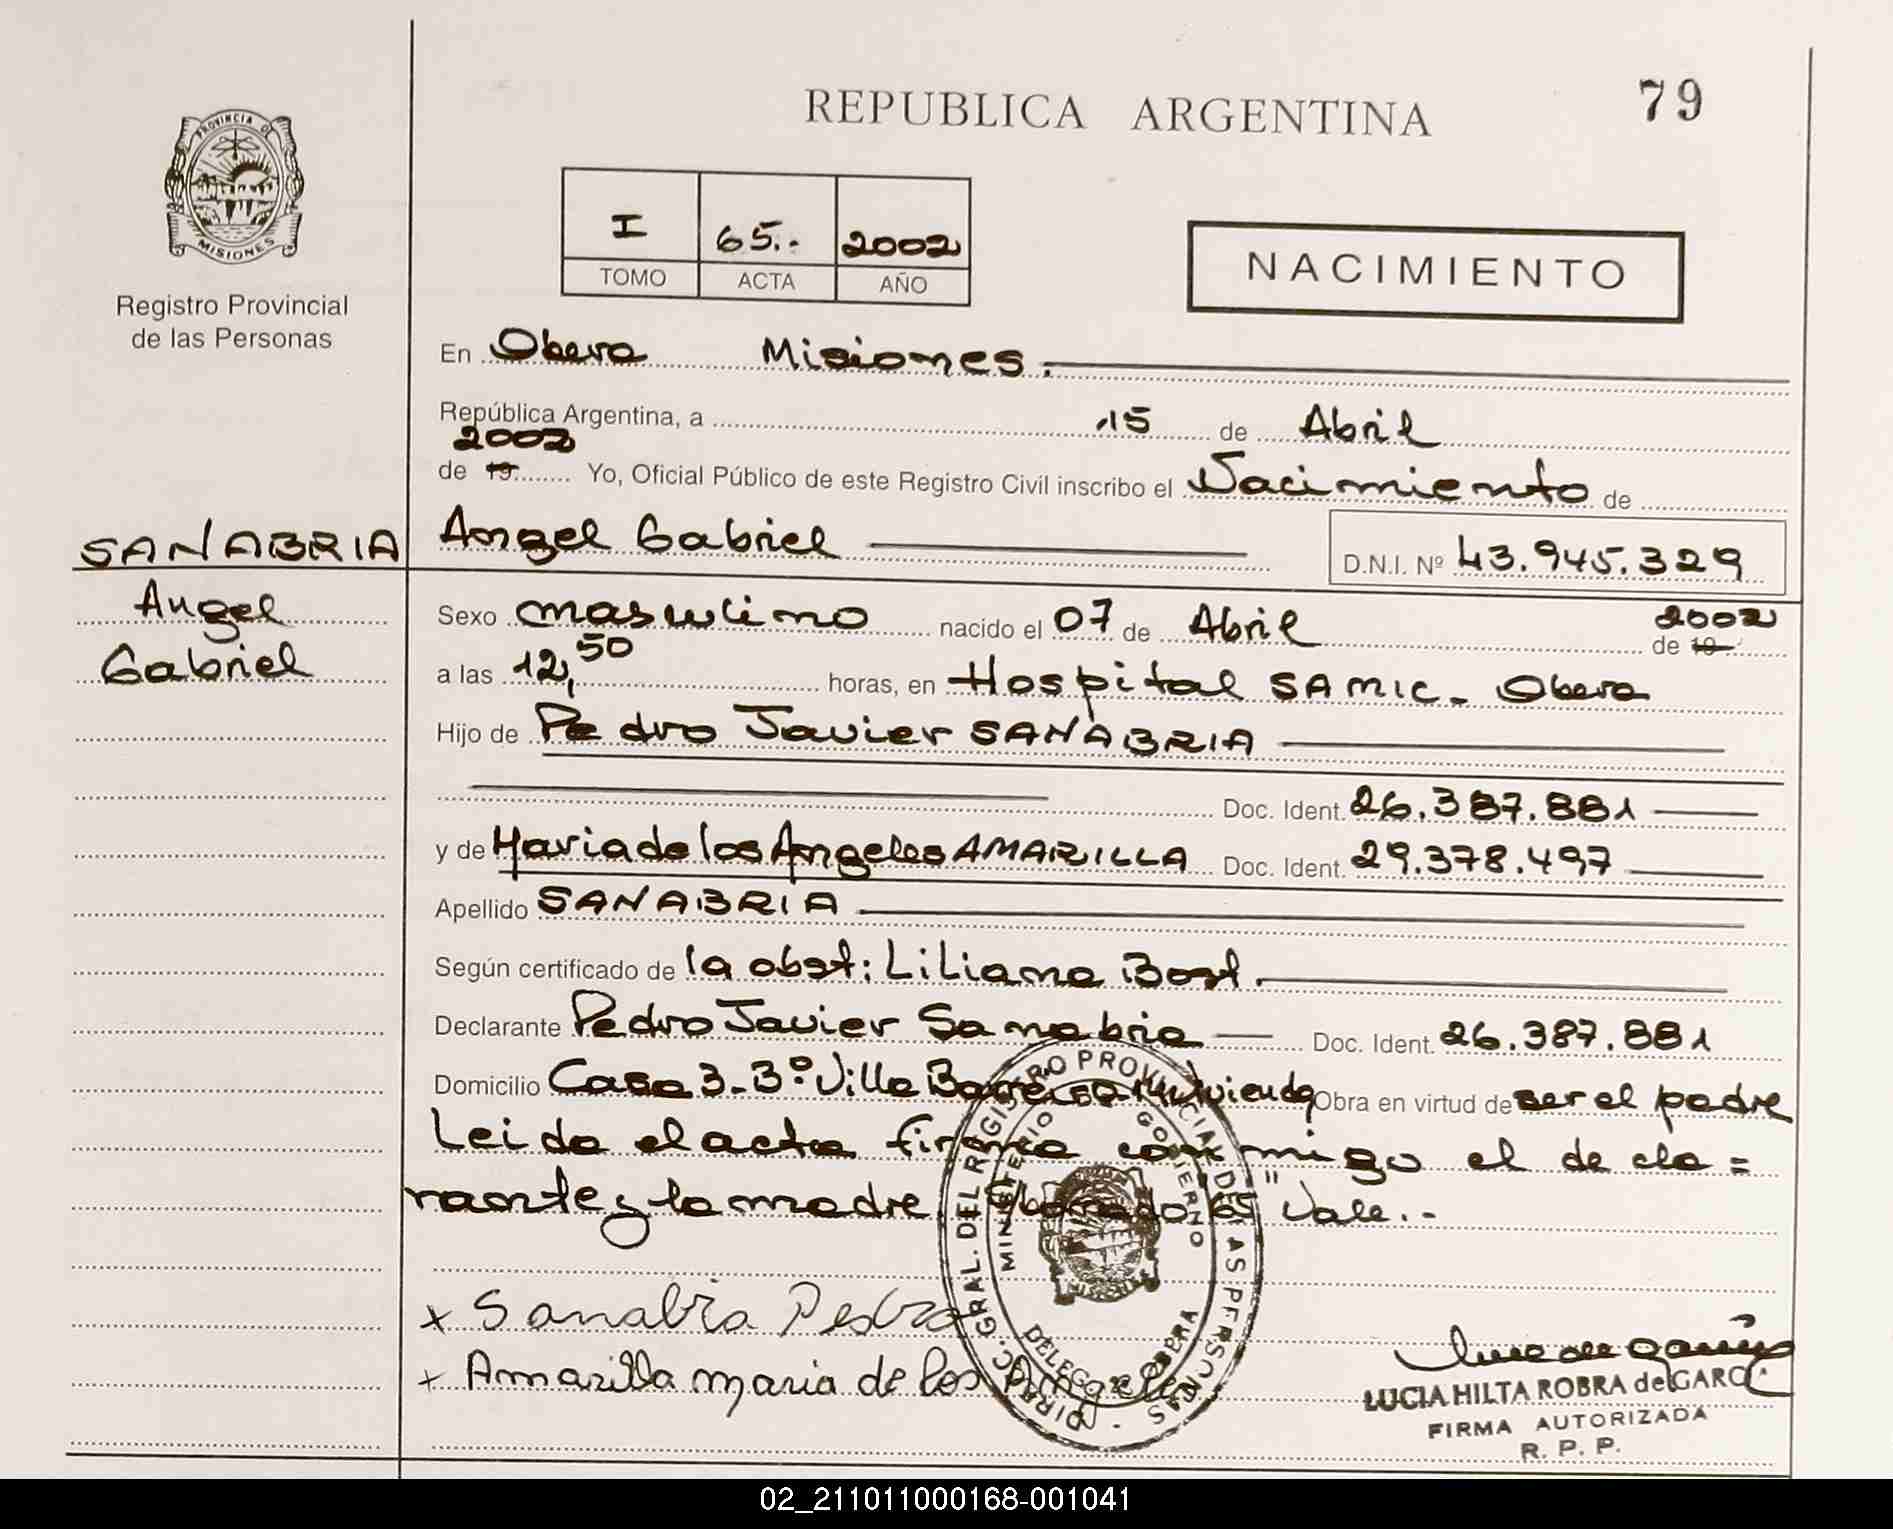 REPUBLICA ARGENTINA
79
PROVINCIA DE
MISIONES
Registro Provincial
de las Personas
I 65.. 2002
TOMO ACTA AÑO
NACIMIENTO
En Obera Misiones.
República Argentina, a 15 de Abril
2002
de 19 Yo, Oficial Público de este Registro Civil inscribo el Nacimiento de
SANABRIA
Angel
Gabriel
Angel Gabriel D.N.I. Nº 43.945.329
Sexo masculino nacido el 07 de Abril de 19 2002
a las 12,50 horas, en Hospital SAMIC - Obera
Hijo de Pedro Javier SANABRIA
Doc. Ident. 26.387.881
y de Maria de los Angeles AMARILLA Doc. Ident. 29.378.497
Apellido SANABRIA
Según certificado de la obst: Liliana Bost.
Declarante Pedro Javier Sanabria Doc. Ident. 26.387.881
Domicilio Casa 3-3º Villa Vivienda Obra en virtud de ser el padre
Leida el acta firma conmigo el decla=
rante y la madre. "65" Vale.-
x Sanabria Pedro
x Amarilla maria de los Angeles
DIREC. GRAL. DEL REGISTRO PROVINCIAL DE LAS PERSONAS
MINISTERIO GOBIERNO
DELEG. OBERA
LUCIA HILTA ROBRA de GARCIA
FIRMA AUTORIZADA
R. P. P.
02_211011000168-001041